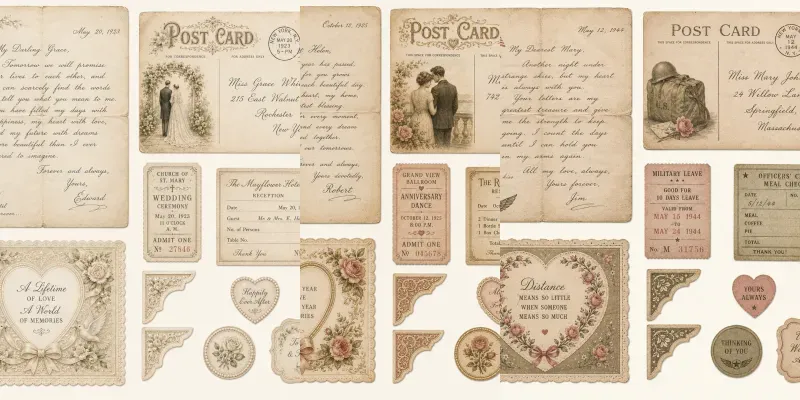 May 20, 1923
My Darling Grace,
Tomorrow we will promise
lives to each other, and
can scarcely find the words
tell you what you mean to me
have filled my days with
happiness, my heart with love,
my future with dreams
more beautiful than I ever
dared to imagine.
Forever and always,
Yours,
Edward
A Lifetime
OF LOVE
A World
OF MEMORIES
POST CARD
THIS SPACE FOR CORRESPONDENCE
FOR ADDRESS ONLY
NEW YORK, N.Y.
MAY 20
1923
5-PM
Miss Grace Whi
215 East Walnut
Rochester
New Yo
CHURCH OF
ST. MARY
WEDDING
CEREMONY
May 20, 1923
11 O'CLOCK
A. M.
ADMIT ONE
No 27846
The Mayflower Hote
RECEPTION
Date May 20, 1
Guest Mr & Mrs. E. Ha
No. of Persons
Table No.
Thank You
Happily
Ever After
October 12, 1925
Helen,
year has passed
for you grows
each beautiful day.
heart, my home,
blessing.
every moment,
every dream
together.
our tomorrows.
and always,
Yours devotedly,
Robert
YEAR
OF LOVE
YEAR
MEMORIES
POST CARD
742
GRAND VIEW
BALLROOM
ANNIVERSARY
DANCE
OCTOBER 12, 1925
8:00 P.M.
ADMIT ONE
No 045678
May 12, 1944
My Dearest Mary,
Another night under
strange skies, but my heart
is always with you.
Your letters are my
greatest treasure and give
me the strength to keep
going. I count the days
until I can hold you
in my arms again.
All my love, always,
Yours forever,
Jim
Distance
MEANS SO LITTLE
WHEN SOMEONE
MEANS SO MUCH
POST CARD
THIS SPACE FOR CORRESPONDENCE
FOR ADDRESS ONLY
MAY
12
1944
Miss Mary Joh
24 Willow Lan
Springfield,
Massachu
MILITARY LEAVE
GOOD FOR
10 DAYS LEAVE
VALID FROM
MAY 15 1944
TO
MAY 24 1944
No. M 31756
OFFICERS' C
MEAL CHEC
DATE
5/12/44
MEAL
COFFEE
PIE
TOTAL
THANK YOU!
YOURS
ALWAYS
THINKING
OF YOU